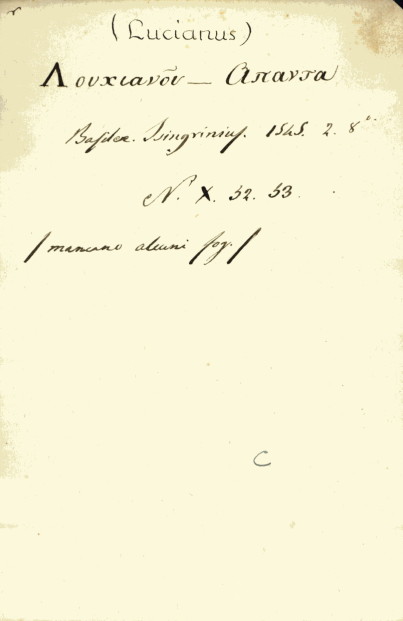 (Lucianus)
Λουκιανοῦ — Απαντα
Basileæ. Isingrinius. 1545. 2. 8°.
N.° X. 52. 53.
/ mancano alcuni fog. /
C